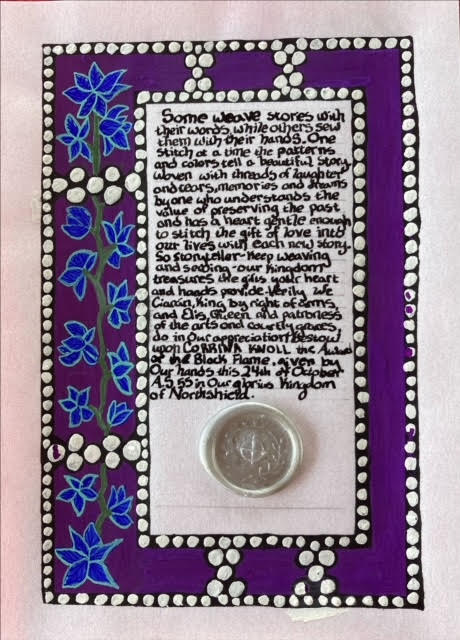 Some weave stories with
their words, while others sew
them with their hands. One
stitch at a time the patterns
and colors tell a beautiful story
woven with threads of laughter
and tears, memories and dreams
by one who understands the
value of preserving the past
and has a heart gentle enough
to stitch the gift of love into
our lives with each new story.
So storyteller- keep weaving
and sewing - our Kingdom
treasures the gifts your heart
and hands provide. Verily We
Ciarán, King by right of arms,
and Elis, Queen and patroness
of the arts and courtly graces
do in Our appreciation bestow
upon CORRINA KNOLL the Award
of the Black Flame. given by
Our hands this 24th of October
A.S. 55 in Our glorius Kingdom
of Northshield.